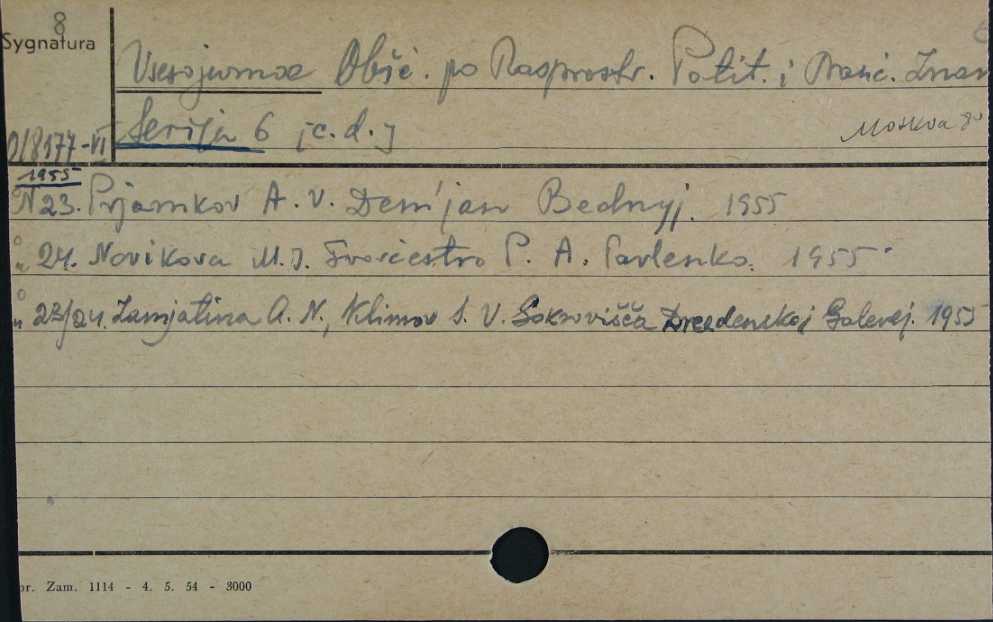 8
Sygnatura
Vsesojuznoe Obšč. po Rasprostr. Polit. i Nauč. Znan
Serija 6 [c.d.]
Moskva 8°
D/8177-VI
1955
N 23. Prjamkov A. V. Dem'jan Bednyj. 1955
" 24. Novikova M. I. Tvorčestvo P. A. Pavlenko. 1955
" 23/24. Zamjatina A. N., Klimov S. V. Sokrovišča Drezdenskoj Galerej. 1955
or. Zam. 1114 - 4. 5. 54 - 3000